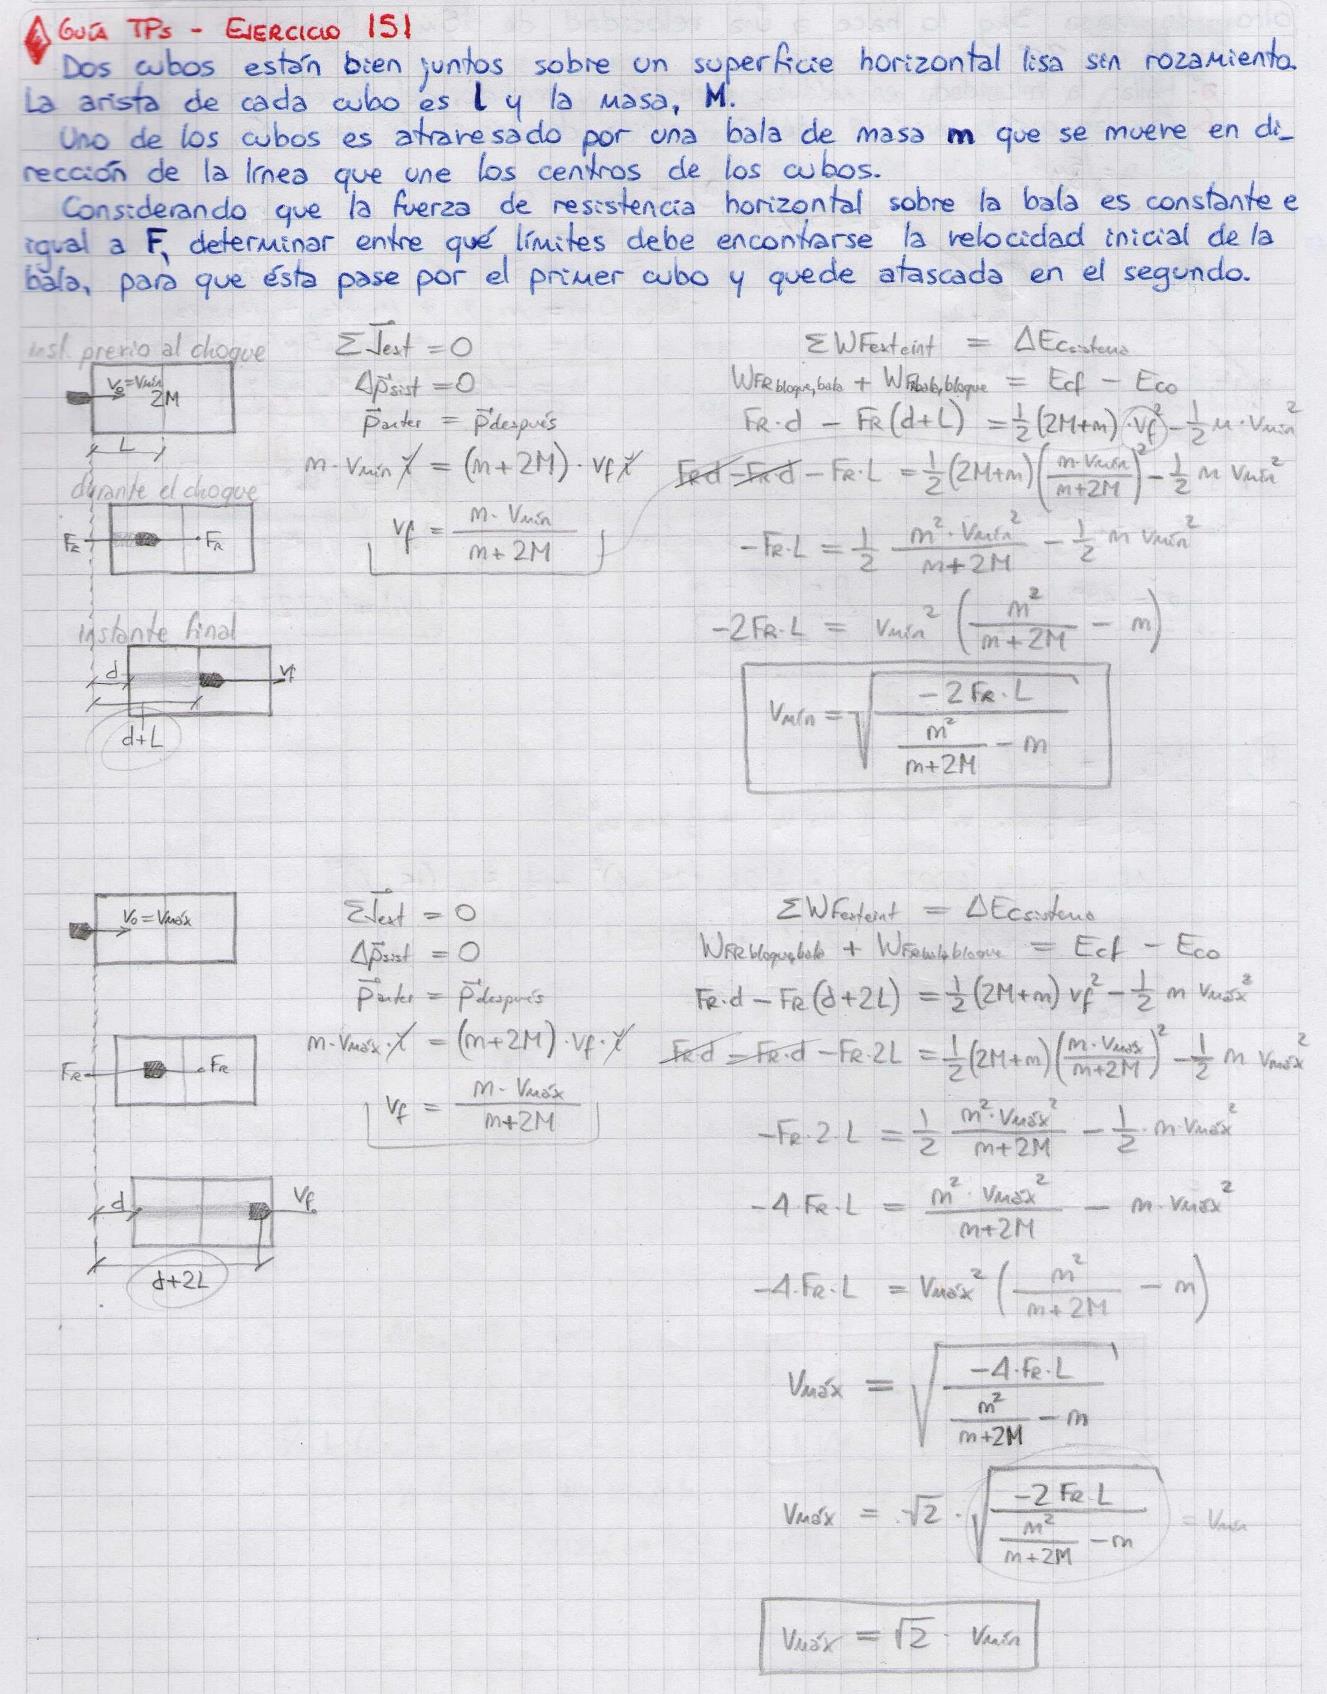 GUÍA TPs - EJERCICIO 151
Dos cubos están bien juntos sobre un superficie horizontal lisa sin rozamiento.
La arista de cada cubo es l y la masa, M.
Uno de los cubos es atravesado por una bala de masa m que se mueve en di_
rección de la línea que une los centros de los cubos.
Considerando que la fuerza de resistencia horizontal sobre la bala es constante e
igual a F, determinar entre qué límites debe encontrarse la velocidad inicial de la
bala, para que ésta pase por el primer cubo y quede atascada en el segundo.
inst. previo al choque
V₀=Vmín
2M
L
durante el choque
FR
FR
instante final
d
Vf
d+L
ΣJext = 0
Δpsist = 0
pantes = pdespués
m·Vmín ĭ = (m+2M)·Vf ĭ
Vf = m·Vmín / (m+2M)
ΣWFext e int = ΔEcsistema
WFR bloque,bala + WFR bala,bloque = Ecf - Eco
FR·d - FR(d+L) = 1/2 (2M+m)·Vf² - 1/2 m·Vmín²
FR·d - FR·d - FR·L = 1/2 (2M+m) (m·Vmín / m+2M)² - 1/2 m Vmín²
-FR·L = 1/2 m²·Vmín² / (m+2M) - 1/2 m Vmín²
-2FR·L = Vmín² (m² / (m+2M) - m)
Vmín = √(-2FR·L / (m²/(m+2M) - m))
V₀=Vmáx
FR
FR
d
Vf
d+2L
ΣJext = 0
Δpsist = 0
pantes = pdespués
m·Vmáx·ĭ = (m+2M)·Vf·ĭ
Vf = m·Vmáx / (m+2M)
ΣWFext e int = ΔEcsistema
WFR bloque,bala + WFR bala,bloque = Ecf - Eco
FR·d - FR(d+2L) = 1/2 (2M+m) Vf² - 1/2 m Vmáx²
FR·d - FR·d - FR·2L = 1/2 (2M+m) (m·Vmáx / m+2M)² - 1/2 m Vmáx²
-FR·2·L = 1/2 m²·Vmáx² / (m+2M) - 1/2·m·Vmáx²
-4·FR·L = m²·Vmáx² / (m+2M) - m·Vmáx²
-4·FR·L = Vmáx² (m² / (m+2M) - m)
Vmáx = √(-4·FR·L / (m²/(m+2M) - m))
Vmáx = √2 · √(-2FR·L / (m²/(m+2M) - m)) = Vmín
Vmáx = √2 · Vmín